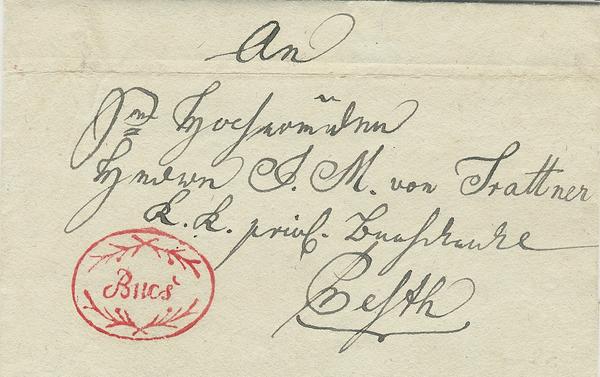 An
Sr Hochwürden
Herrn J. M. von Trattner
k. k. priv. Buchdrucke
Pesth
Bucs